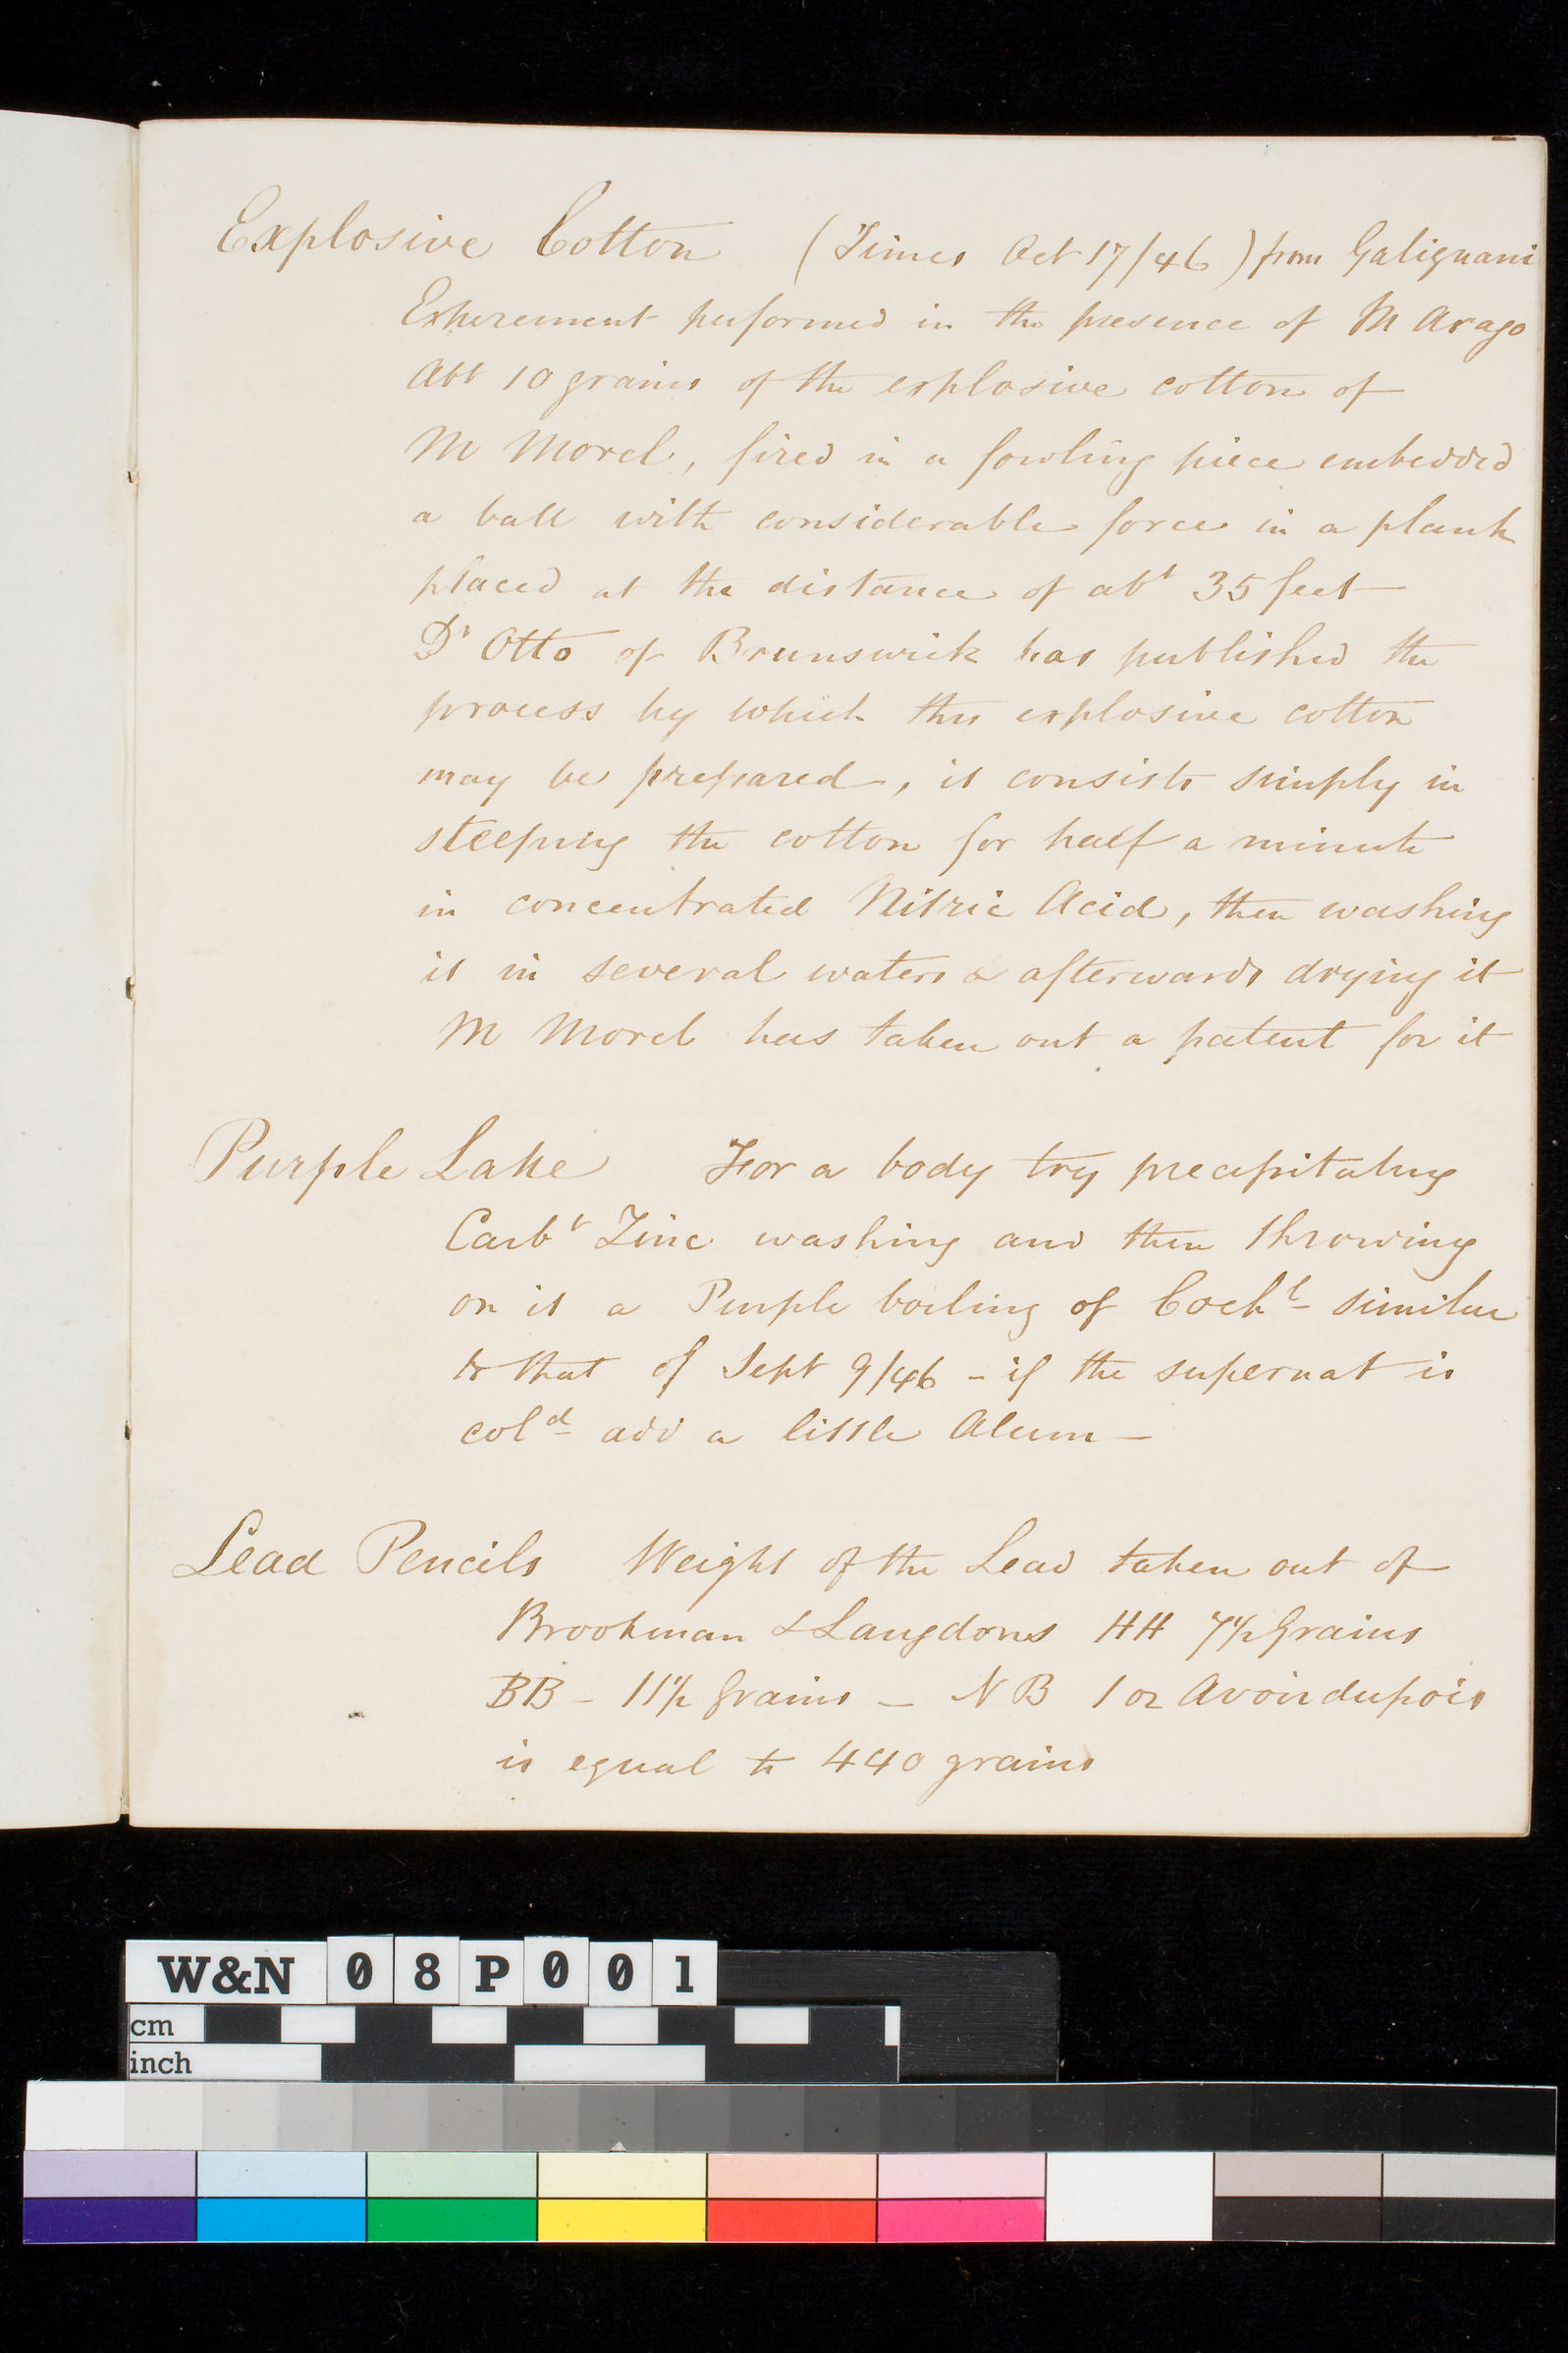 Explosive Cotton (Times Oct 17/46) from Galignani
Experement performed in the presence of M Arago
Abt 10 grains of the explosive cotton of
M Morel, fired in a fowling piece embedded
a ball with considerable force in a plank
placed at the distance of abt 35 feet
Dr Otto of Brunswick has published the
process by which this explosive cotton
may be prepared, it consists simply in
steeping the cotton for half a minute
in concentrated Nitric Acid, then washing
it in several waters & afterwards drying it
M Morel has taken out a patent for it
Purple Lake For a body try precipitating
Carbt Zinc washing and then throwing
on it a Purple boiling of Cochl similar
to that of Sept 9/46 - if the supernat is
cold add a little Alum -
Lead Pencils Weight of the Lead taken out of
Brookman & Langdons HH 7½ Grains
BB - 11½ Grains - NB 1 oz Avoirdupois
is equal to 440 grains
W&N 08P001
cm
inch